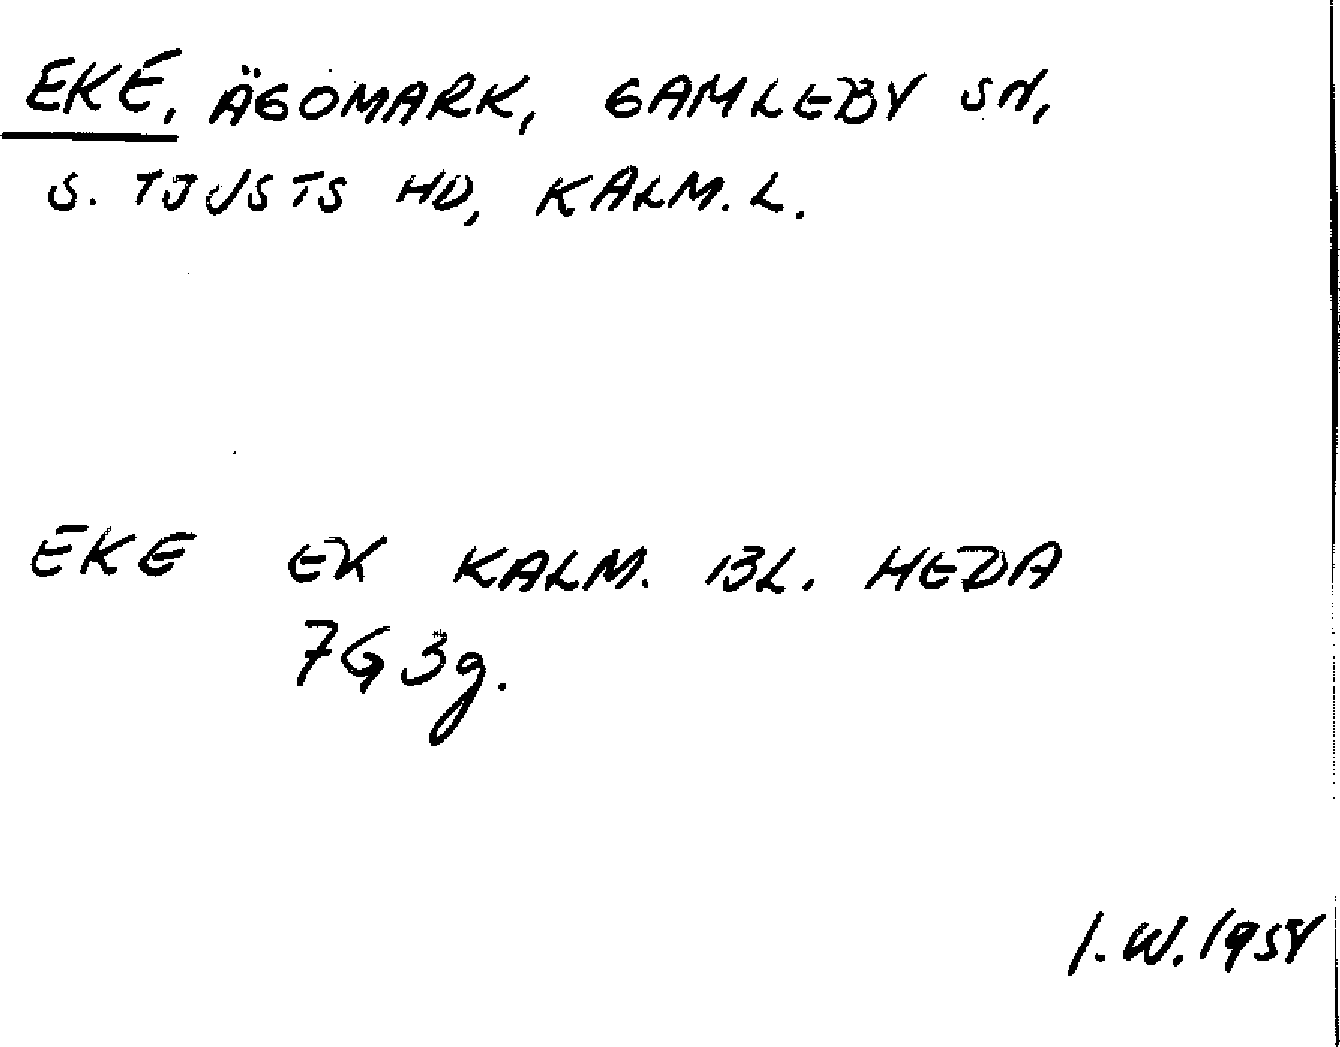 EKE, ÄGOMARK, GAMLEBY SN,
S. TJUSTS HD, KALM. L.
EKE EK KALM. BL. HEDA
7G3g.
I. W. 1954